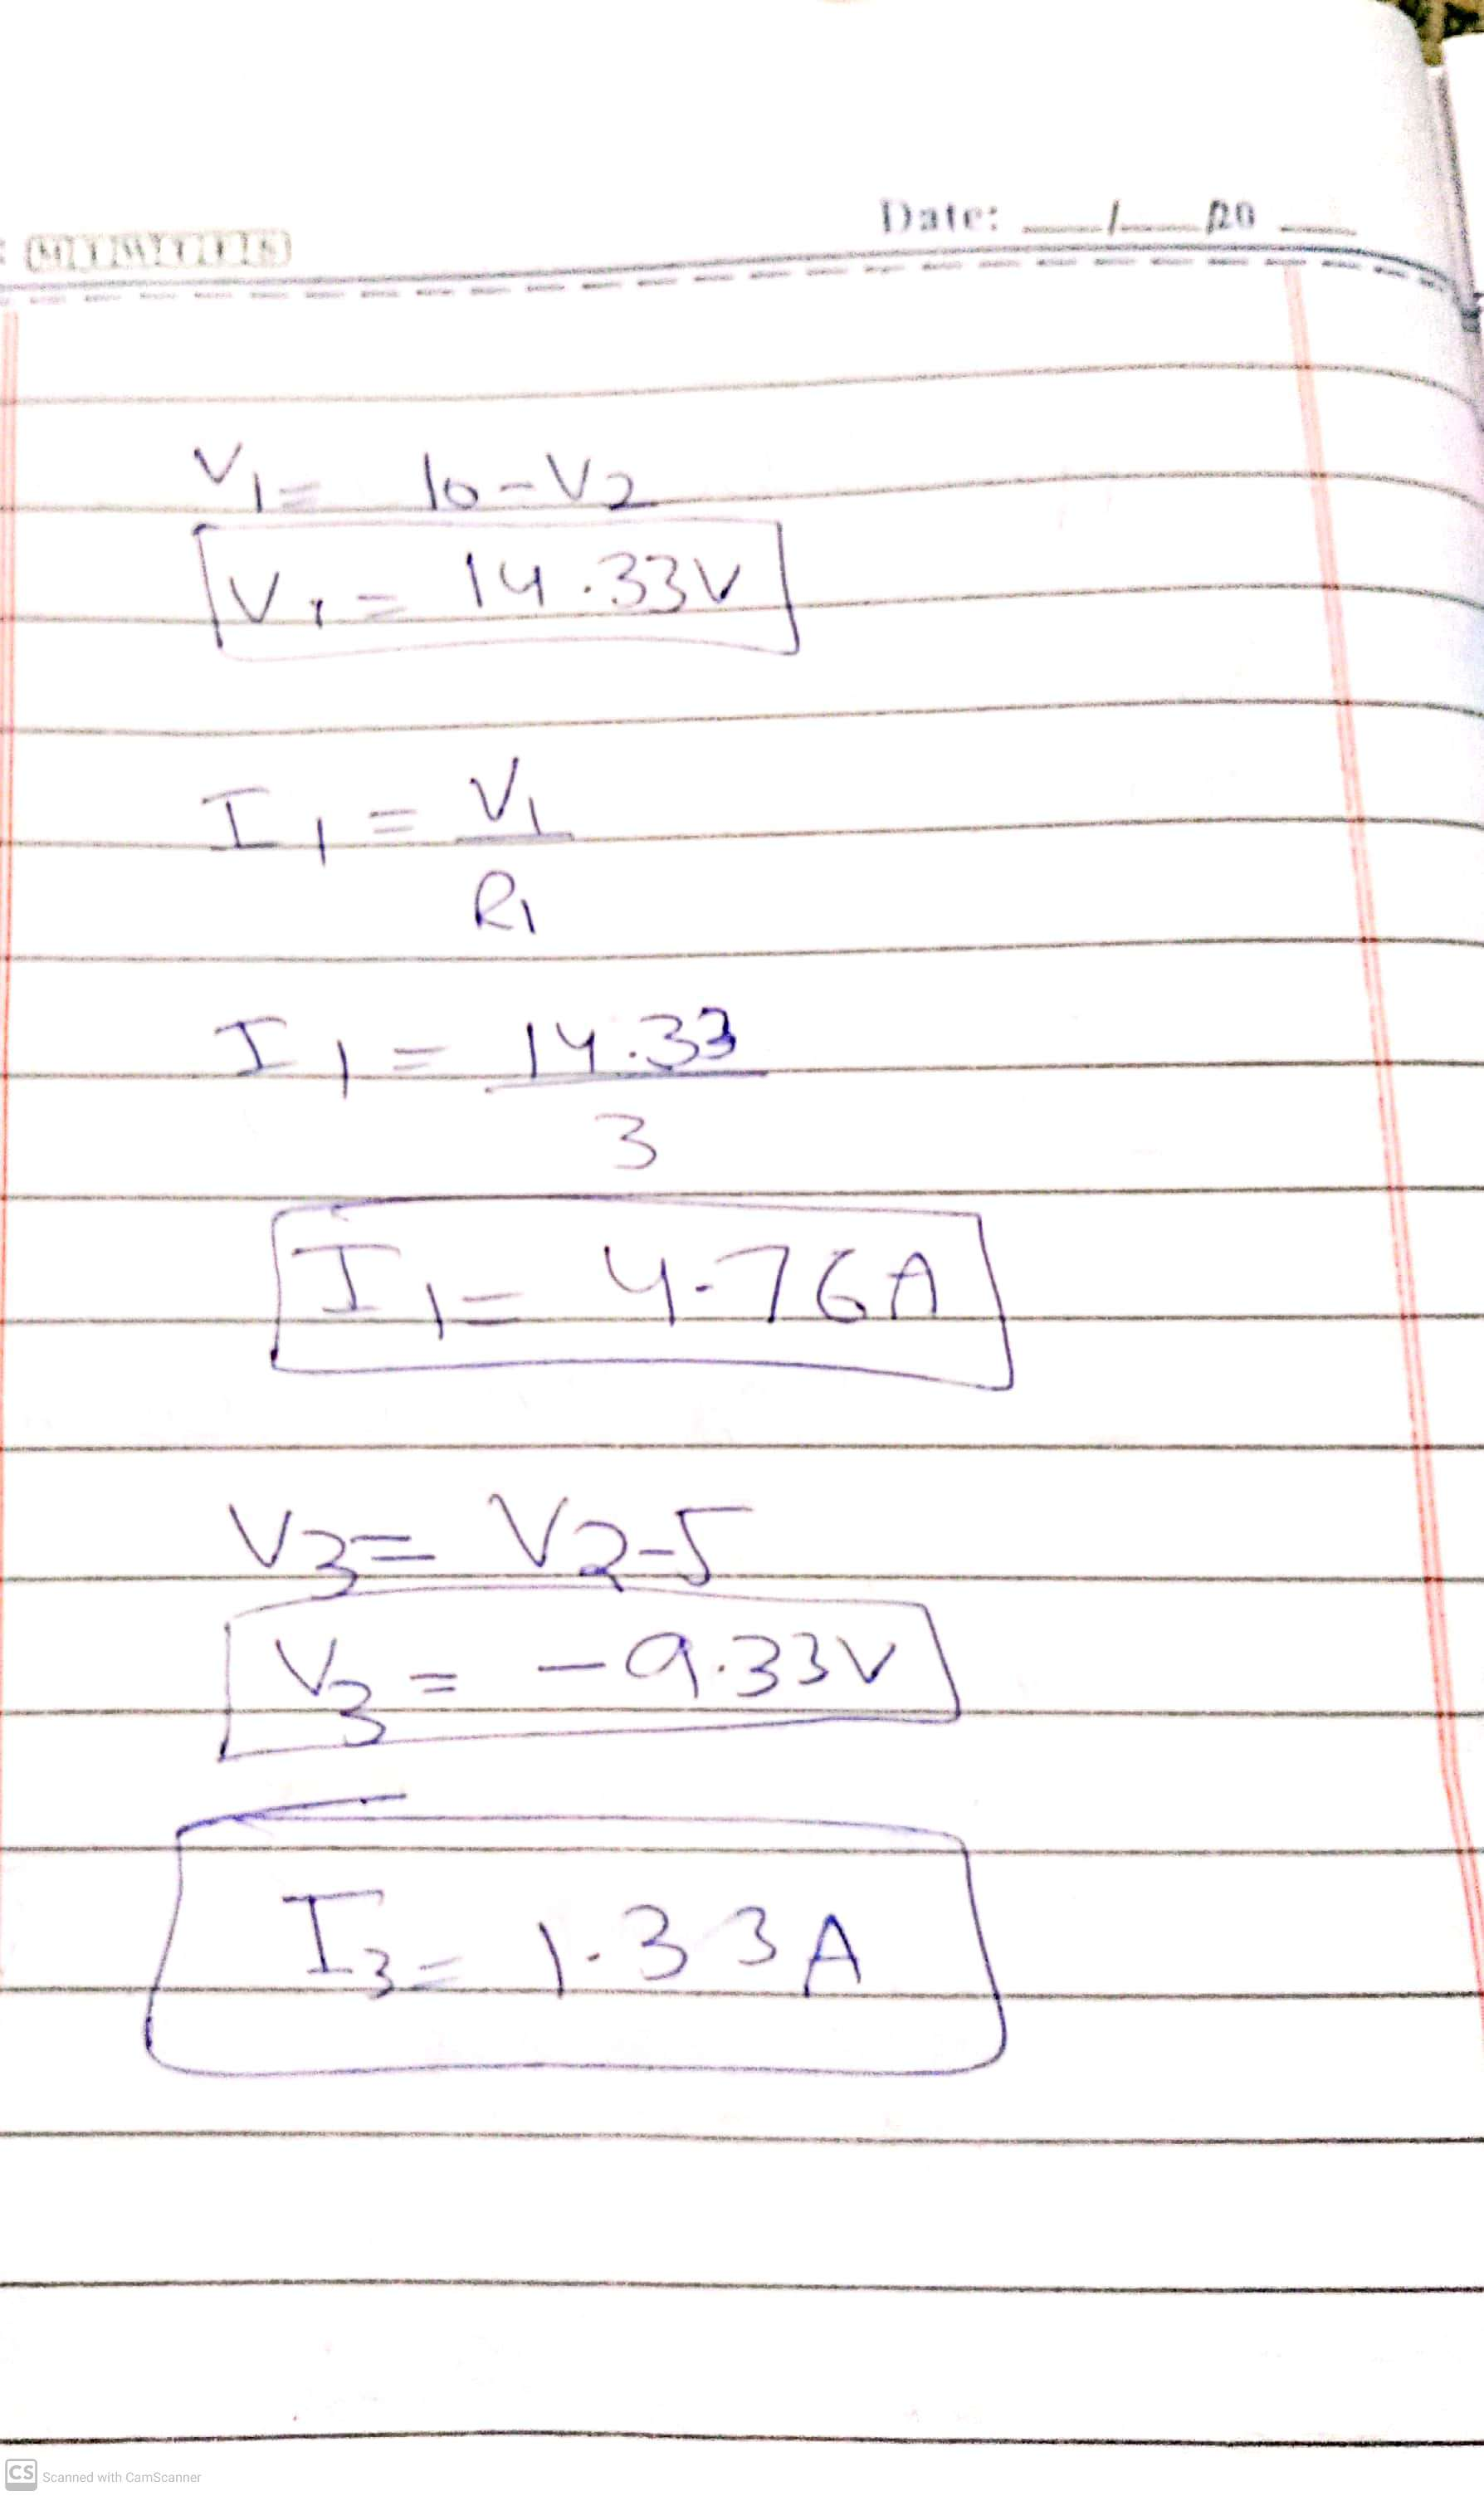 Date: ___/___/20 ___
V1 = 10 - V2
V1 = 14.33V
I1 = V1
R1
I1 = 14.33
3
I1 = 4.76A
V3 = V2 - 5
V3 = -9.33V
I3 = 1.33A
CS Scanned with CamScanner